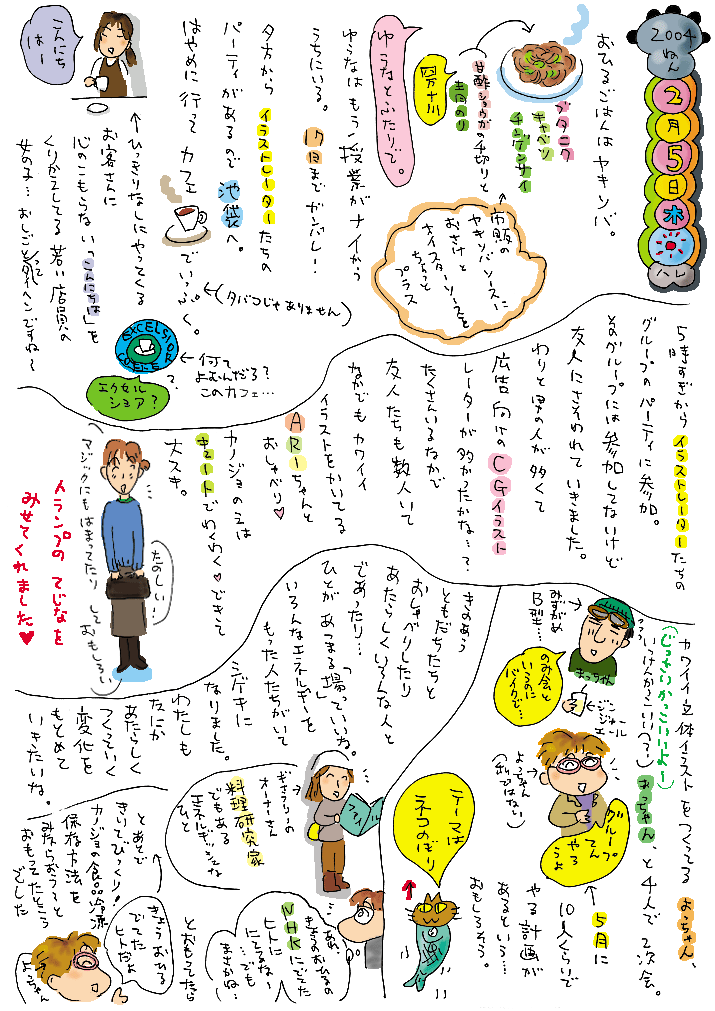 2004
ねん
2
月
5
日
木
ハレ
おひるごはんはヤキソバ。
ブタニク
キャベツ
チンゲンサイ
甘酢ショウガの千切りと
青のり
市販の
ヤキソバソースに
おさけと
オイスターソースを
ちょっと
プラス
ゆうなとふたりで。
ゆうなはもう授業がナイから
うちにいる。17日までガンバレー!
夕方からイラストレーターたちの
パーティがあるので池袋へ。
はやめに行ってカフェでいっぷく。
(タバコじゃありません)
EXCELSIOR
COFFEE
何て
よむんだろ?
このカフェ…
エクセル
シオア?
ひっきりなしにやってくる
お客さんに
心のこもらない「こんにちは」を
くりかえしてる若い店員の
女の子…おしごとってタイヘンですね〜
こんにち
はー
5時すぎからイラストレーターたちの
グループのパーティに参加。
そのグループには参加してないけど
友人にさそわれていきました。
わりと男の人が多くて
広告向けのCGイラスト
レーターが多かったかな…?
たくさんいるなかで
友人たちも数人いて
なかでもカワイイ
イラストをかいてる
ARIーちゃんと
おしゃべり♥
カノジョのエは
キュートでわくわく♥できて
大スキ。
たのしい…
マジックにもはまってたりしておもしろい
トランプのてじなを
みせてくれました♥
カワイイ立体イラストをつくってるよっちゃん、
おっちゃん、と4人で2次会。
(じっさいかっこいいよー)
いっけんかっこいい(?)
みずがめ
B型…
おっちゃん
のみ会と
いうのに
バイクで…
ジン
ジャー
エール
よっちゃん
(おっちゃんではない)
グループ
てん
やろ
うよ
5月に
10人くらいで
やる計画が
あるという…
おもしろそう。
テーマは
ネコのぼり
きのあう
ともだちたちと
おしゃべりしたり
あたらしくいろんな人と
であったり…
ひとがあつまる場っていいね。
いろんなエネルギーを
もった人たちがいて
シゲキに
なりました。
わたしも
なにか
あたらしく
つくっていく
変化を
もとめて
いきたいね。
ギャラリーの
オーナーさん
でもある
料理研究家
エネルギッシュな
ひと
ファイル
あ、
きょうおひるの
NHKにでてた
ヒトに
にてるなー
…でも
まさかね…
とおもってたら
きょうおひる
でてた
ヒトだよ
よっちゃん
とあとで
きいてびっくり!
カノジョの食品冷凍
保存方法を
みならおう〜と
おもってたところ
でした